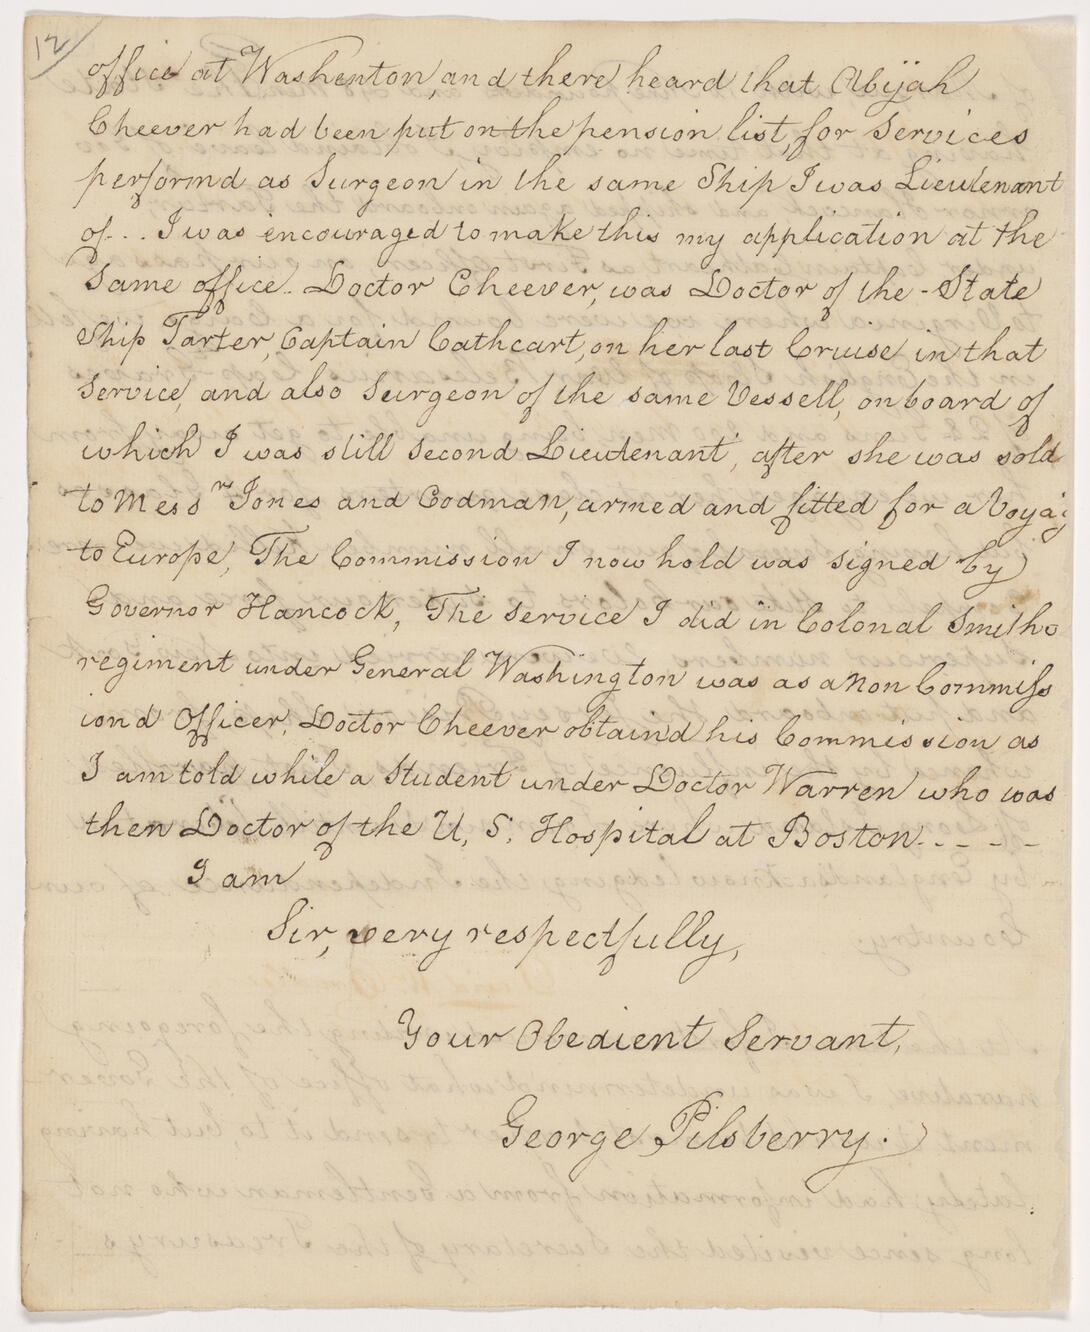 12
office at Washenton, and there heard that Abijah
Cheever had been put on the pension list, for Services
performd as Surgeon in the same Ship I was Lieutenant
of... I was encouraged to make this my application at the
Same office. Doctor Cheever, was Doctor of the - State
Ship Tarter, Captain Cathcart, on her last Cruise in that
Service, and also Surgeon of the same Vessell, on board of
which I was still Second Lieutenant, after she was sold
to Messrs Jones and Codman, armed and fitted for a Voyag
to Europe, The Commission I now hold was signed by
Governor Hancock, The service I did in Colonal Smiths
regiment under General Washington was as a Non Commiss
iond Officer, Doctor Cheever obtaind his Commission as
I am told while a Student under Doctor Warren who was
then Doctor of the U, S. Hospital at Boston - - - -
I am
Sir, very respectfully,
Your Obedient Servant,
George Pilsberry.